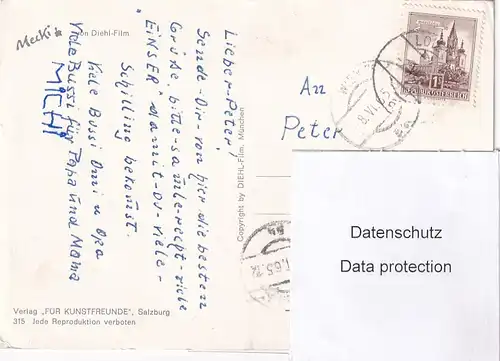 Mecki
von Diehl-Film
Lieber Peter!
Sende Dir von hier die besten
Grüße, bitte sammle recht viele
"EINSER", damit Du viele
Schilling bekomst.
Viele Bussi Omi u Opa
Viele Bussi für Papa und Mama
MICHI
Copyright by DIEHL-Film, München
An
Peter
REPUBLIK ÖSTERREICH
Datenschutz
Data protection
Verlag „FÜR KUNSTFREUNDE", Salzburg
315 Jede Reproduktion verboten